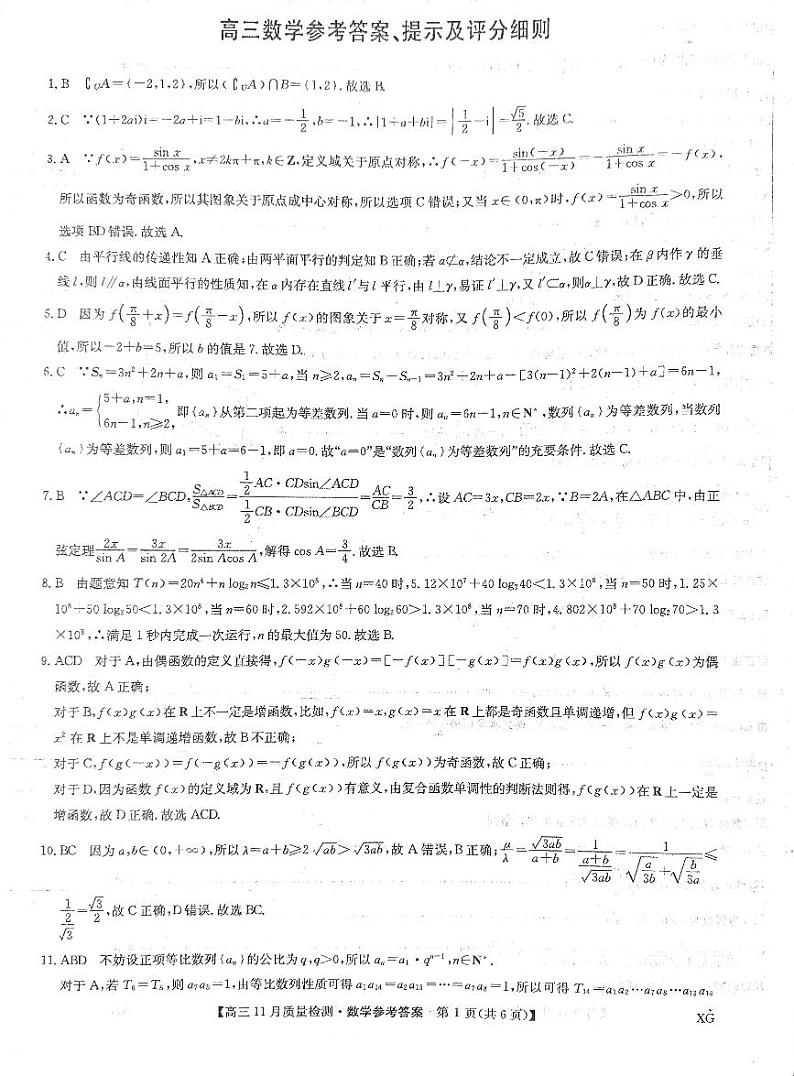 高三数学参考答案、提示及评分细则
1. B ∁UA={-2,1,2},所以(∁UA)∩B={1,2}.故选 B.
2. C ∵(1+2ai)i=-2a+i=1-bi,∴a=-1/2,b=-1,∴|1+a+bi|=|1/2-i|=√5/2.故选 C.
3. A ∵f(x)=sin x/(1+cos x),x≠2kπ+π,k∈Z,定义域关于原点对称,∴f(-x)=sin(-x)/(1+cos(-x))=-sin x/(1+cos x)=-f(x),
所以函数为奇函数,所以其图象关于原点成中心对称,所以选项 C 错误;又当 x∈(0,π)时,f(x)=sin x/(1+cos x)>0,所以
选项 BD 错误.故选 A.
4. C 由平行线的传递性知 A 正确;由两平面平行的判定知 B 正确;若 a⊄α,结论不一定成立,故 C 错误;在 β 内作 γ 的垂
线 l,则 l∥α,由线面平行的性质知,在 α 内存在直线 l′与 l 平行,由 l⊥γ,易证 l′⊥γ,又 l′⊂α,则α⊥γ,故 D 正确.故选 C.
5. D 因为 f(π/8+x)=f(π/8-x),所以 f(x)的图象关于 x=π/8 对称,又 f(π/8)<f(0),所以 f(π/8)为 f(x)的最小
值,所以-2+b=5,所以 b 的值是 7.故选 D.
6. C ∵Sn=3n²+2n+a,则 a₁=S₁=5+a,当 n≥2,an=Sn-Sn-1=3n²+2n+a-[3(n-1)²+2(n-1)+a]=6n-1,
∴an={5+a,n=1, 6n-1,n≥2, 即{an}从第二项起为等差数列.当 a=0 时,则 an=6n-1,n∈N*,数列{an}为等差数列,当数列
{an}为等差数列,则 a₁=5+a=6-1,即 a=0.故“a=0”是“数列{an}为等差数列”的充要条件.故选 C.
7. B ∵∠ACD=∠BCD,S△ACD/S△BCD=(1/2 AC·CDsin∠ACD)/(1/2 CB·CDsin∠BCD)=AC/CB=3/2,∴设 AC=3x,CB=2x,∵B=2A,在△ABC 中,由正
弦定理 2x/sin A=3x/sin 2A=3x/(2sin Acos A),解得 cos A=3/4.故选 B.
8. B 由题意知 T(n)=20n⁴+n log₂n≤1.3×10⁸,∴当 n=40 时,5.12×10⁷+40 log₂40<1.3×10⁸,当 n=50 时,1.25×
10⁸+50 log₂50<1.3×10⁸,当 n=60 时,2.592×10⁸+60 log₂60>1.3×10⁸,当 n=70 时,4.802×10⁸+70 log₂70>1.3
×10⁸,∴满足 1 秒内完成一次运行,n 的最大值为 50.故选 B.
9. ACD 对于 A,由偶函数的定义直接得,f(-x)g(-x)=[-f(x)][-g(x)]=f(x)g(x),所以 f(x)g(x)为偶
函数,故 A 正确;
对于 B,f(x)g(x)在 R 上不一定是增函数,比如,f(x)=x,g(x)=x 在 R 上都是奇函数且单调递增,但 f(x)g(x)=
x² 在 R 上不是单调递增函数,故 B 不正确;
对于 C,f(g(-x))=f(-g(x))=-f(g(x)),所以 f(g(x))为奇函数,故 C 正确;
对于 D,因为函数 f(x)的定义域为 R,且 f(g(x))有意义,由复合函数单调性的判断法则得,f(g(x))在 R 上一定是
增函数,故 D 正确.故选 ACD.
10. BC 因为 a,b∈(0,+∞),所以 λ=a+b≥2√ab>√3ab,故 A 错误,B 正确;μ/λ=√3ab/(a+b)=1/((a+b)/√3ab)=1/(√(a/3b)+√(b/3a))≤
1/(2/√3)=√3/2,故 C 正确,D 错误.故选 BC.
11. ABD 不妨设正项等比数列{an}的公比为 q,q>0,所以 an=a₁·qⁿ⁻¹,n∈N*.
对于 A,若 T₆=T₈,则 a₇a₈=1,由等比数列性质可得 a₁a₁₄=a₂a₁₃=…=a₇a₈=1,所以可得 T₁₄=a₁a₂…a₇a₈…a₁₃a₁₄
【高三 11 月质量检测·数学参考答案 第 1 页(共 6 页)】
XG